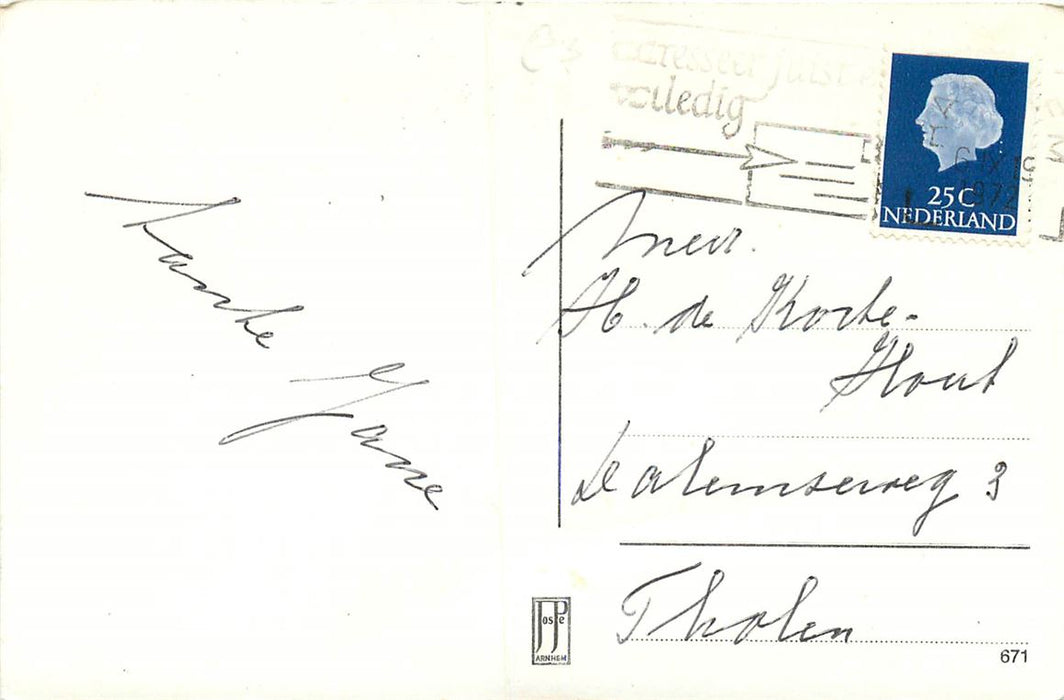 Tante Janne
Adresseer juist en
volledig
6 IX 19
1972
25C
NEDERLAND
Mevr.
H. de Korte-
Hout
Dalemseweg 3
Tholen
JosPe
ARNHEM
671